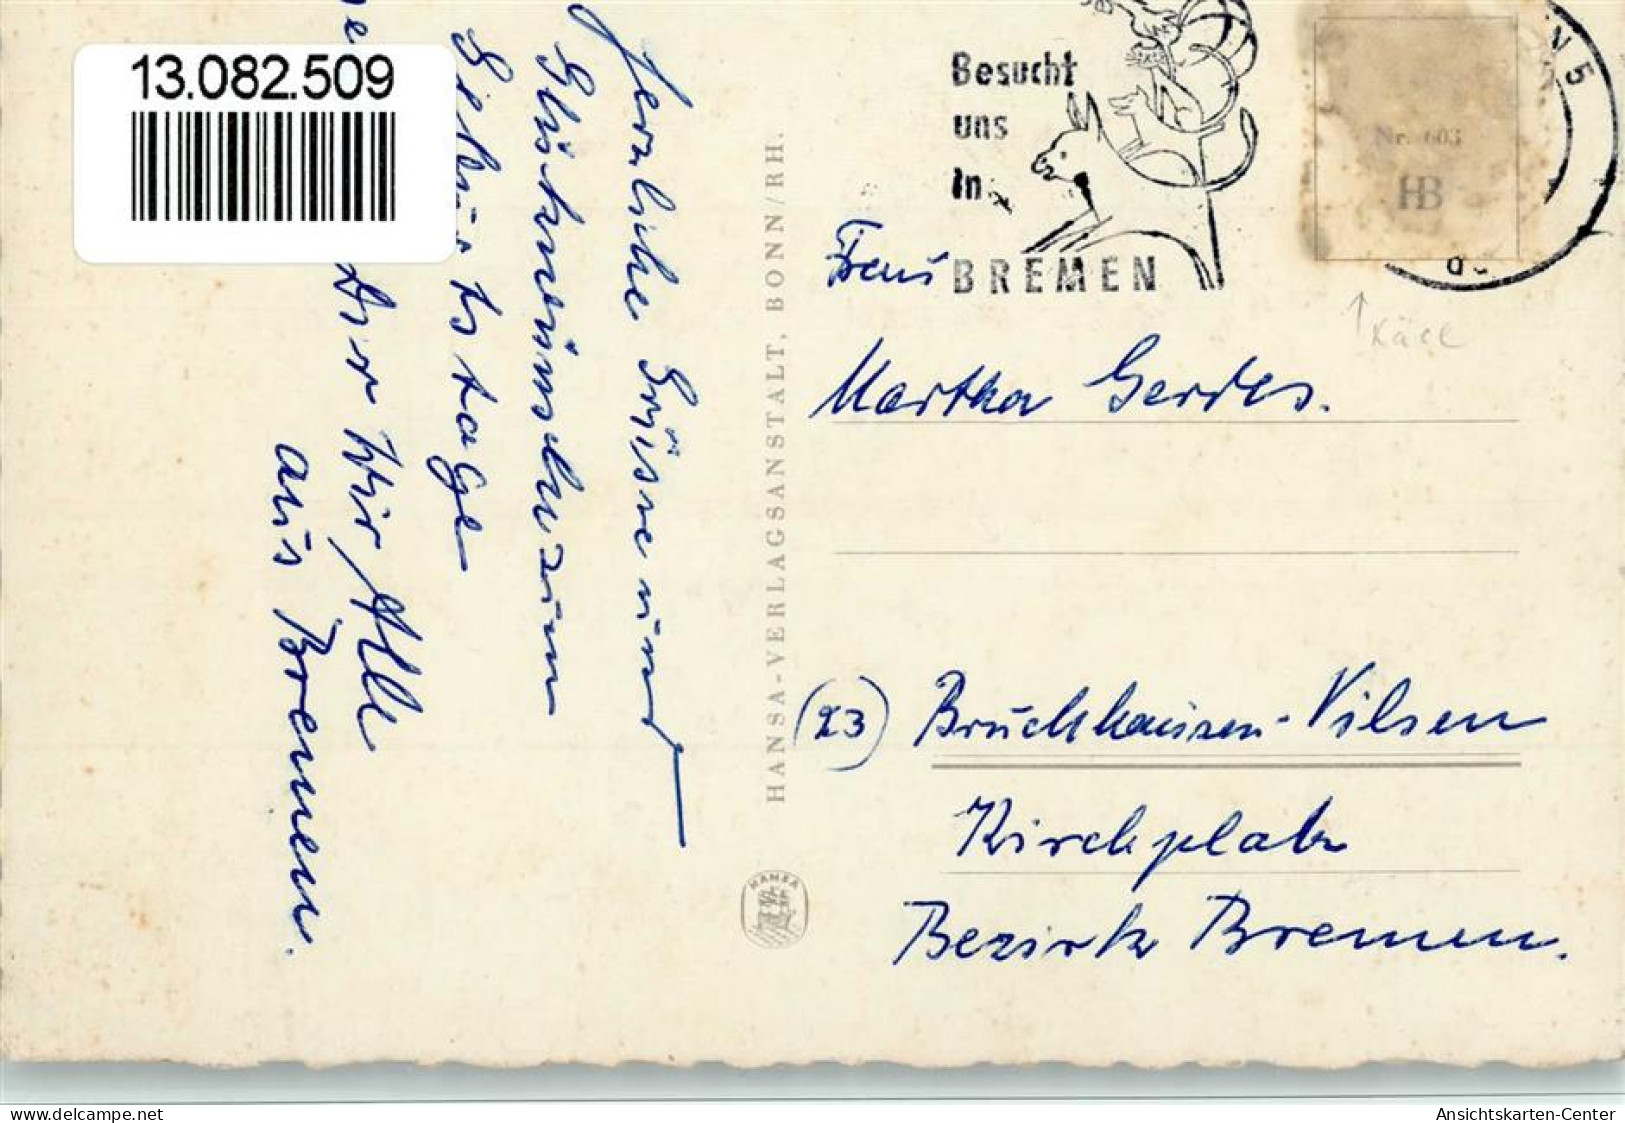 13.082.509
Herzliche Grüsse und
Glückwünsche zum
Geburtstage
Dir Wir Alle
aus Bremen.
HANSA-VERLAGSANSTALT, BONN/RH.
HANSA
Besucht
uns
in
BREMEN
N 5
Nr. 603
HB
Frau
Martha Gerdes.
(23) Bruchhausen-Vilsen
Kirchplatz
Bezirk Bremen.
www.delcampe.net
Ansichtskarten-Center